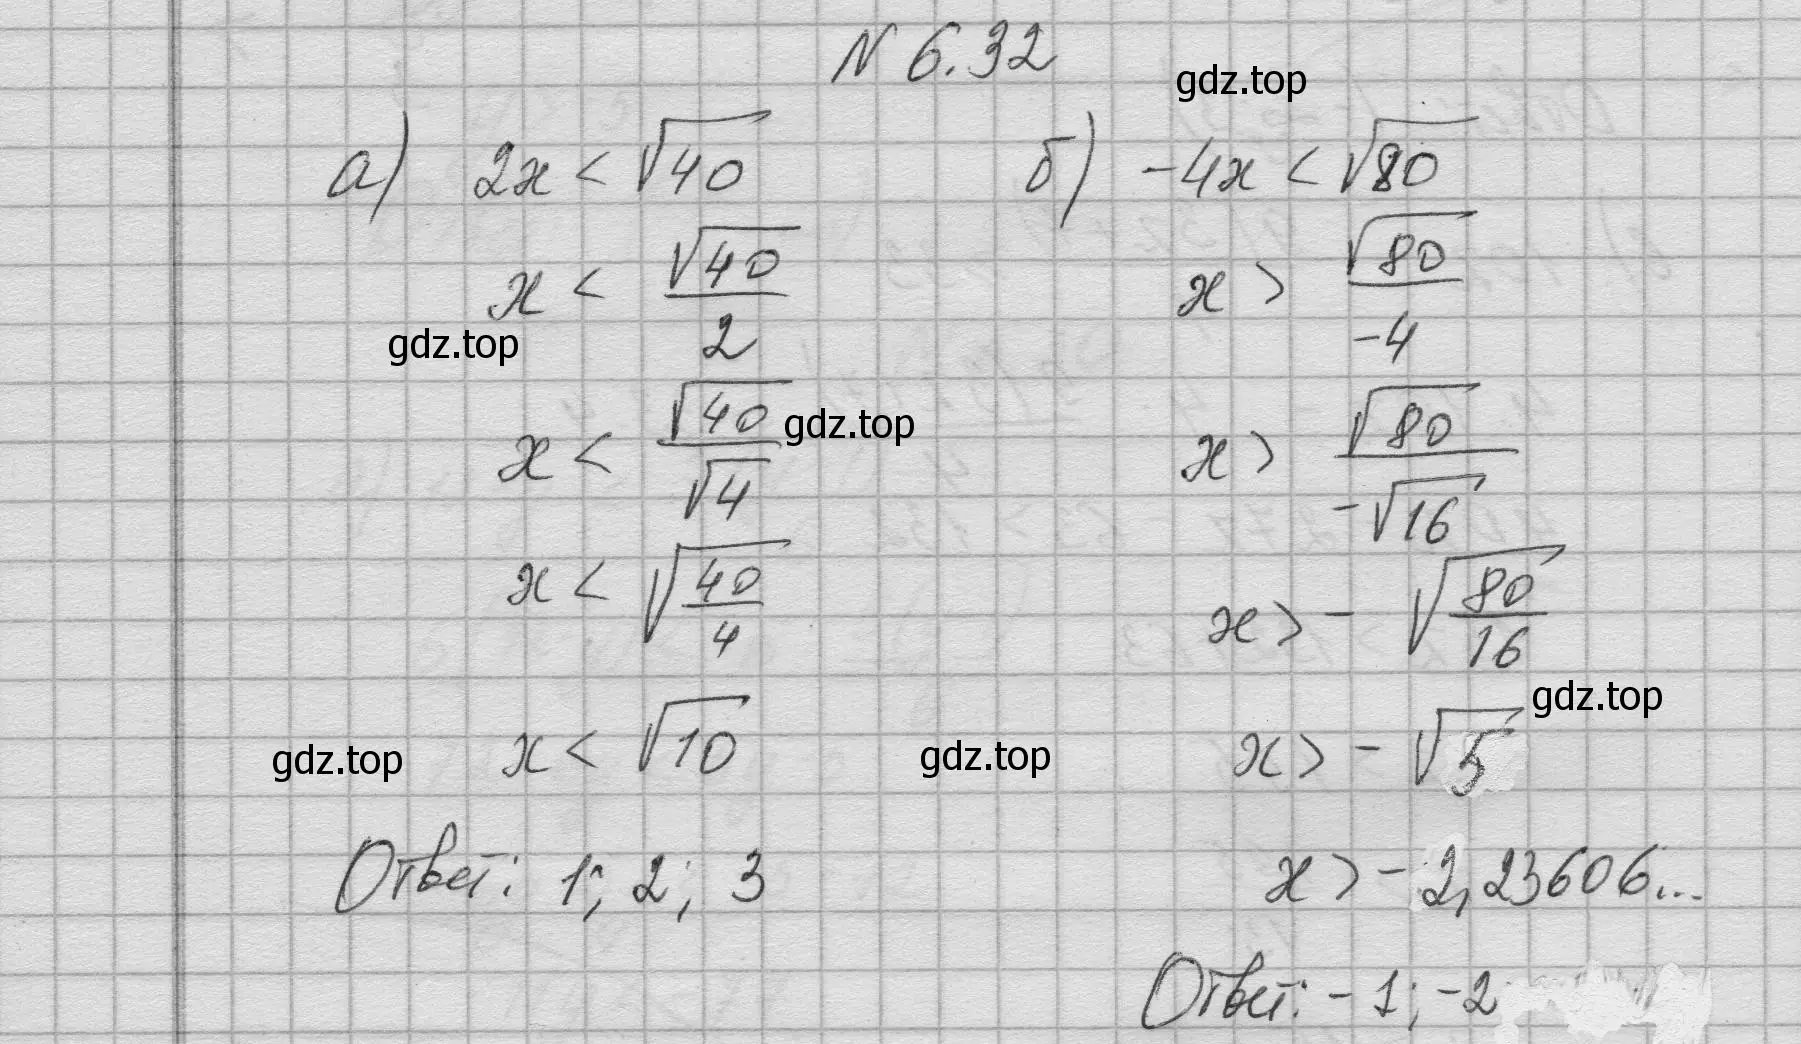 N 6.32
gdz.top
а) 2x < √40
x < √40/2
gdz.top
x < √40/√4
gdz.top
x < √(40/4)
x < √10
gdz.top
Ответ: 1; 2; 3
б) -4x < √80
x > √80/-4
x > √80/-√16
x > -√(80/16)
gdz.top
x > -√5
gdz.top
x > -2,23606...
Ответ: -1; -2